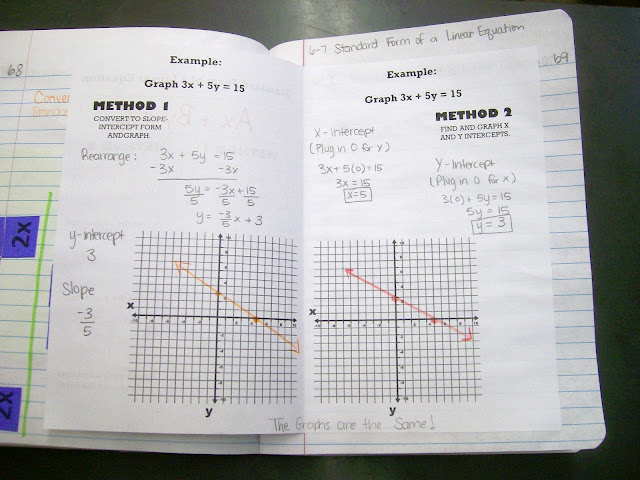 68
Conver
Standa
2x
2x
Example:
Graph 3x + 5y = 15
METHOD 1
CONVERT TO SLOPE-
INTERCEPT FORM
ANDGRAPH.
Rearrange: 3x + 5y = 15
-3x -3x
5y = -3x + 15
5 5 5
y = -3/5 x + 3
y-intercept
3
Slope
-3
5
x
y
6-7 Standard Form of a Linear Equation
69
Example:
Graph 3x + 5y = 15
METHOD 2
FIND AND GRAPH X
AND Y INTERCEPTS.
X-Intercept
(Plug in 0 for y)
3x + 5(0) = 15
3x = 15
x=5
Y-Intercept
(Plug in 0 for x)
3(0) + 5y = 15
5y = 15
y = 3
x
y
The Graphs are the Same!